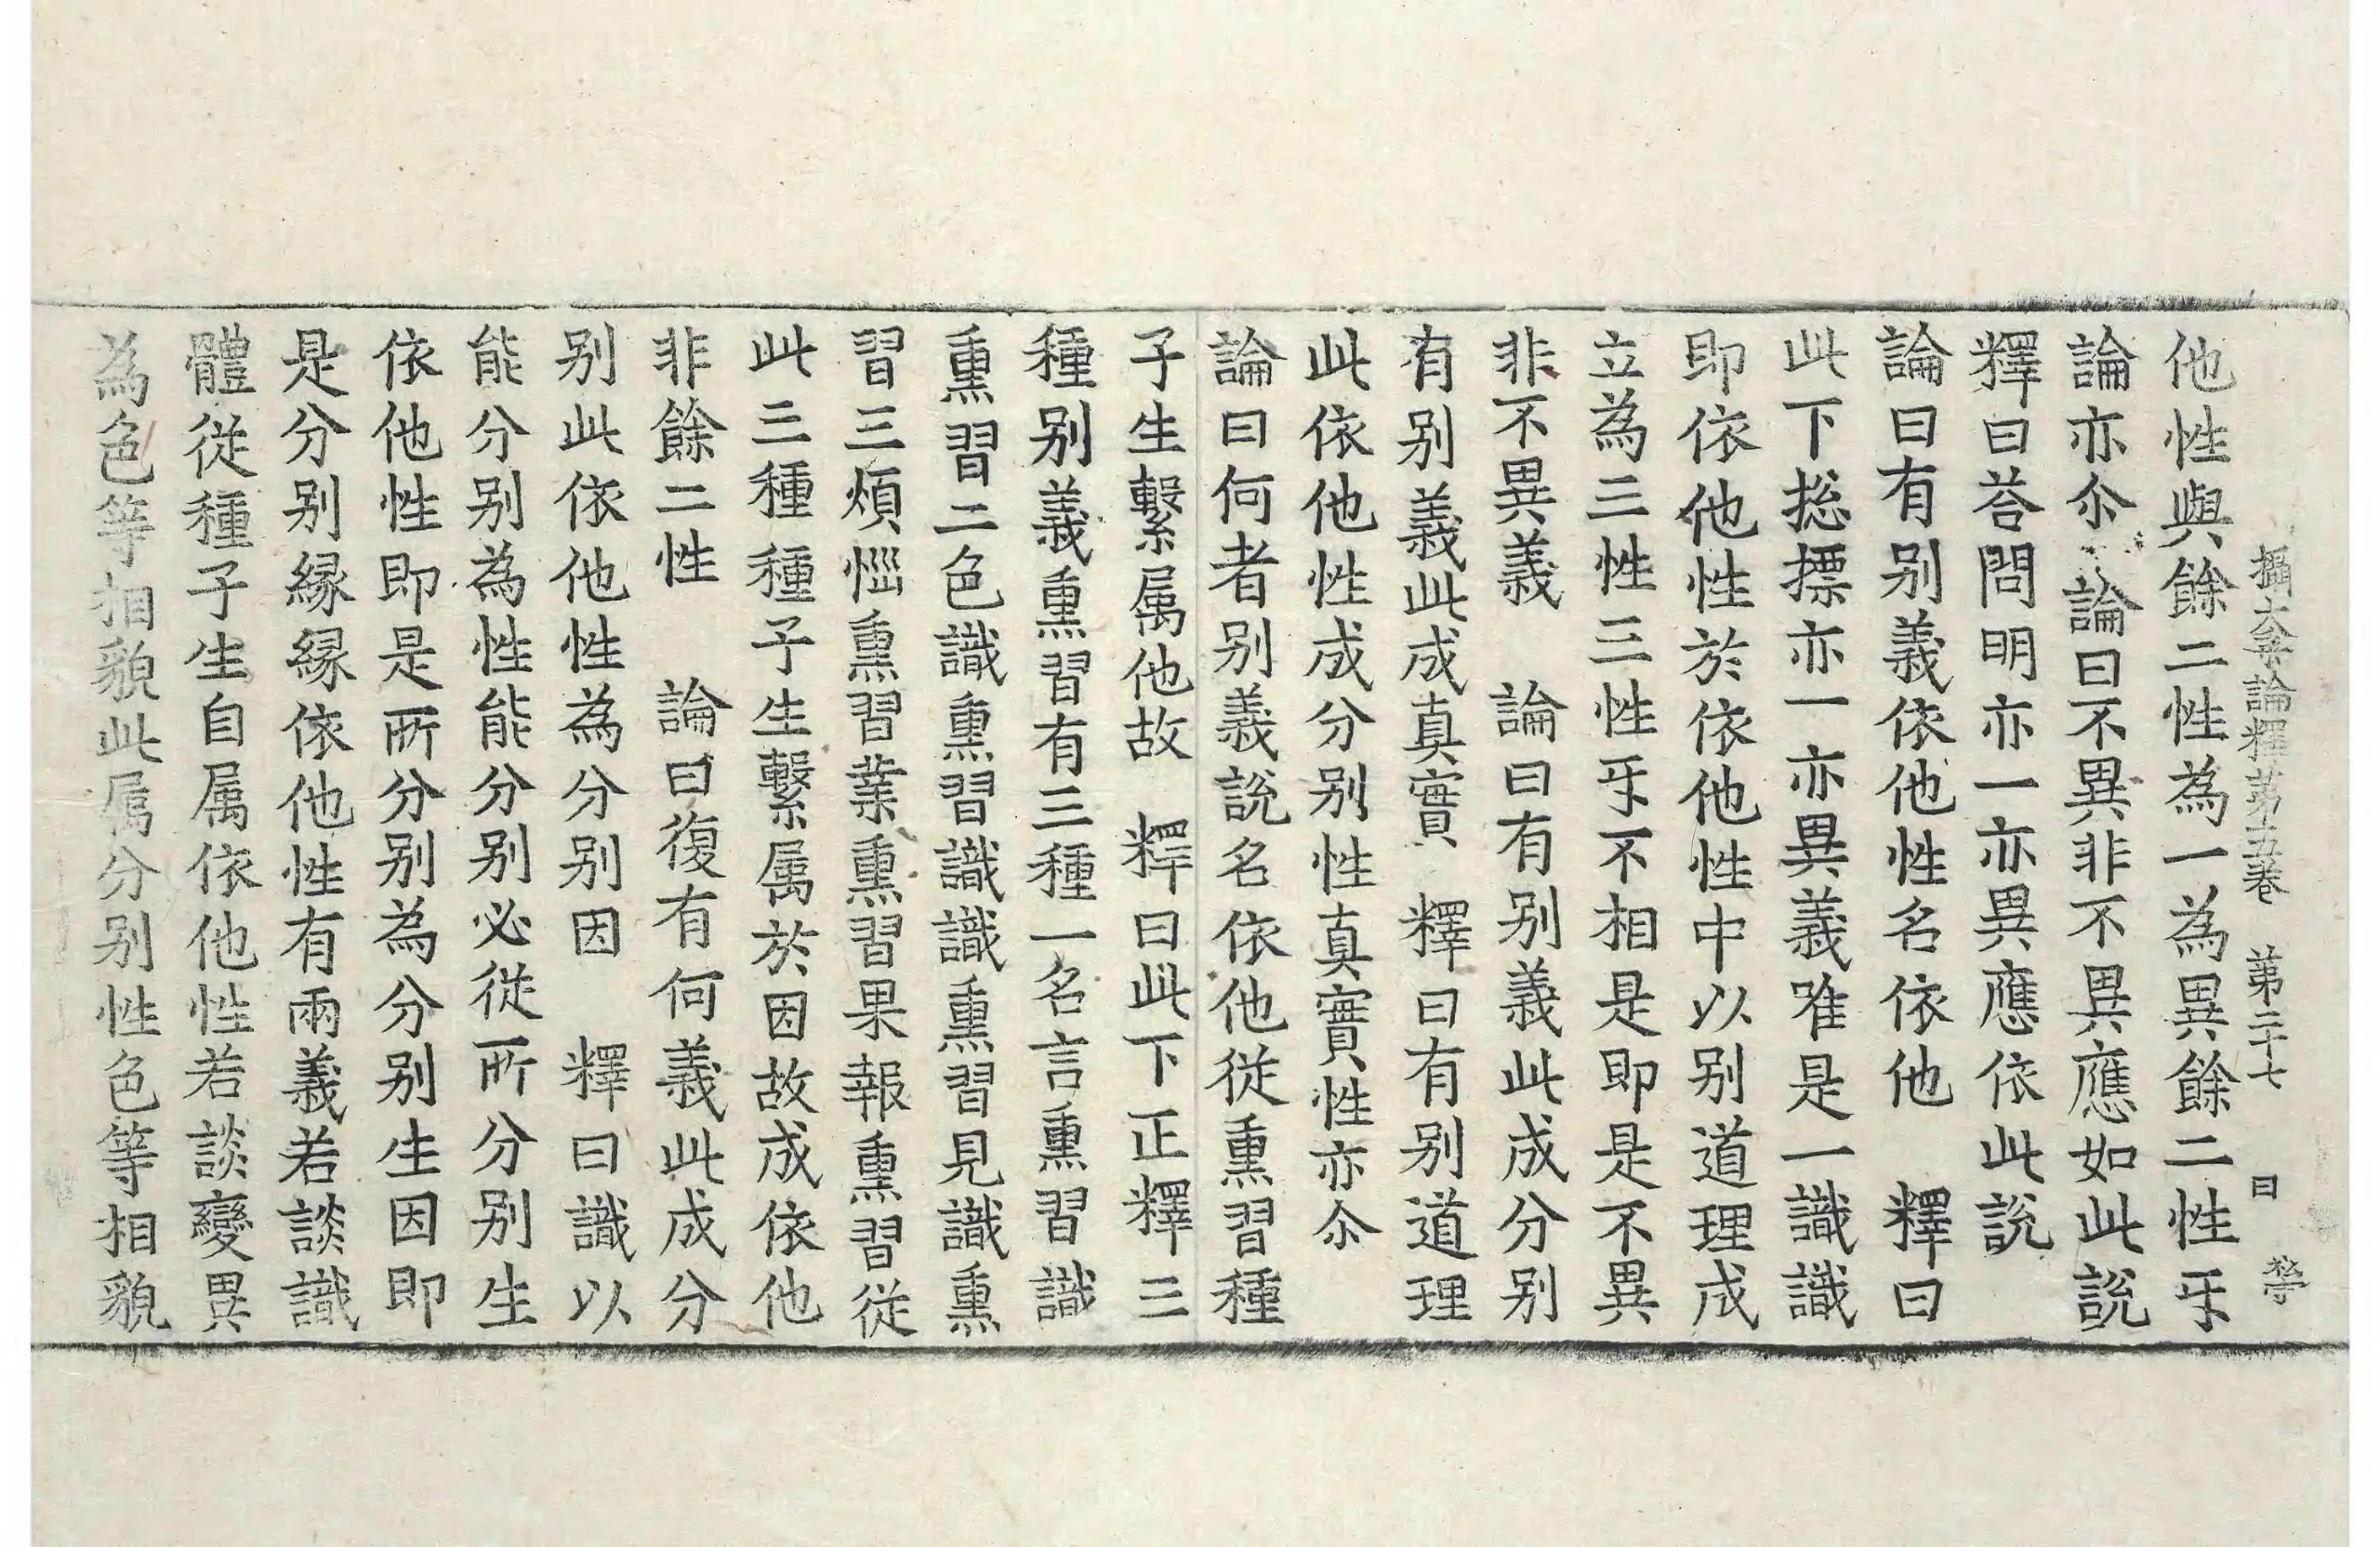 攝大乗論釋第五卷　第二十七　曰
他性與餘二性為一為異餘二性㸦
論亦尒　論曰不異非不異應如此說
釋曰荅問明亦一亦異應依此說
論曰有别義依他性名依他　釋曰
此下揔摽亦一亦異義唯是一識識
即依他性於依他性中以别道理成
立為三性三性㸦不相是即是不異
非不異義　論曰有别義此成分别
有别義此成真實　釋曰有别道理
此依他性成分别性真實性亦尒
論曰何者别義說名依他從熏習種
子生繫属他故　釋曰此下正釋三
種别義熏習有三種一名言熏習識
熏習二色識熏習識識熏習見識熏
習三煩惱熏習業熏習果報熏習從
此三種種子生繫属於因故成依他
非餘二性　論曰復有何義此成分
别此依他性為分别因　釋曰識以
能分别為性能分别必從所分别生
依他性即是所分别為分别生因即
是分别縁縁依他性有兩義若談識
體從種子生自属依他性若談變異
為色等相貌此属分别性色等相貌